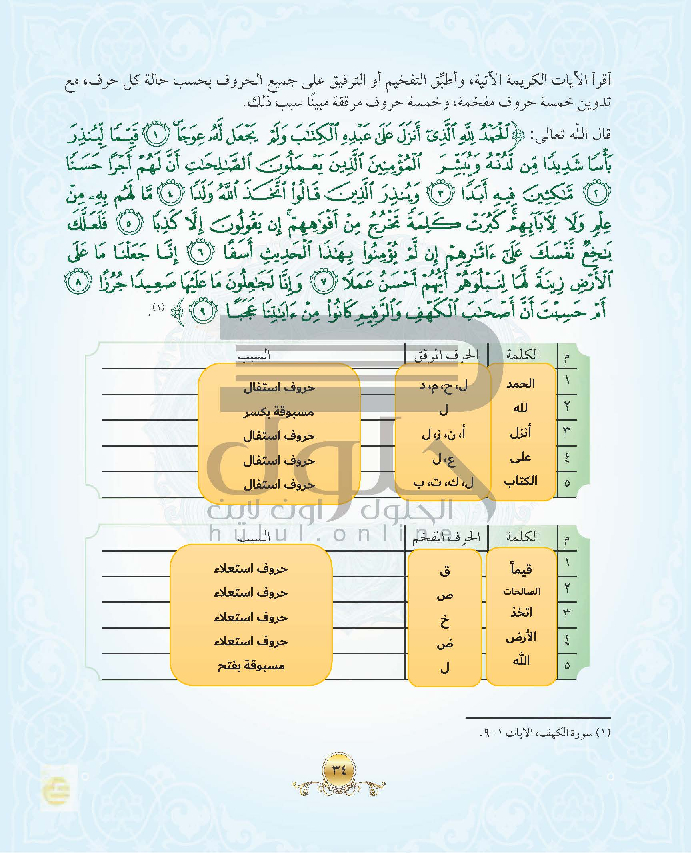 أقرأ الآيات الكريمة الآتية، وأطبِّق التفخيم أو الترقيق على جميع الحروف بحسب حالة كل حرف، مع
تدوين خمسة حروف مفخمة، وخمسة حروف مرققة مبينًا سبب ذلك.
قال الله تعالى: ﴿ ٱلۡحَمۡدُ لِلَّهِ ٱلَّذِيٓ أَنزَلَ عَلَىٰ عَبۡدِهِ ٱلۡكِتَٰبَ وَلَمۡ يَجۡعَل لَّهُۥ عِوَجَاۜ ١ قَيِّمٗا لِّيُنذِرَ
بَأۡسٗا شَدِيدٗا مِّن لَّدُنۡهُ وَيُبَشِّرَ ٱلۡمُؤۡمِنِينَ ٱلَّذِينَ يَعۡمَلُونَ ٱلصَّٰلِحَٰتِ أَنَّ لَهُمۡ أَجۡرًا حَسَنٗا
٢ مَّٰكِثِينَ فِيهِ أَبَدٗا ٣ وَيُنذِرَ ٱلَّذِينَ قَالُواْ ٱتَّخَذَ ٱللَّهُ وَلَدٗا ٤ مَّا لَهُم بِهِۦ مِنۡ
عِلۡمٖ وَلَا لِأٓبَآئِهِمۡۚ كَبُرَتۡ كَلِمَةٗ تَخۡرُجُ مِنۡ أَفۡوَٰهِهِمۡۚ إِن يَقُولُونَ إِلَّا كَذِبٗا ٥ فَلَعَلَّكَ
بَٰخِعٞ نَّفۡسَكَ عَلَىٰٓ ءَاثَٰرِهِمۡ إِن لَّمۡ يُؤۡمِنُواْ بِهَٰذَا ٱلۡحَدِيثِ أَسَفًا ٦ إِنَّا جَعَلۡنَا مَا عَلَى
ٱلۡأَرۡضِ زِينَةٗ لَّهَا لِنَبۡلُوَهُمۡ أَيُّهُمۡ أَحۡسَنُ عَمَلٗا ٧ وَإِنَّا لَجَٰعِلُونَ مَا عَلَيۡهَا صَعِيدٗا جُرُزًا ٨
أَمۡ حَسِبۡتَ أَنَّ أَصۡحَٰبَ ٱلۡكَهۡفِ وَٱلرَّقِيمِ كَانُواْ مِنۡ ءَايَٰتِنَا عَجَبًا ٩ ﴾ (١).
م لكلمة الحرف المرقق السبب
١ الحمد ل، ح، م، د حروف استفال
٢ لله ل مسبوقة بكسر
٣ أنزل أ، ن، ز، ل حروف استفال
٤ على ع، ل حروف استفال
٥ الكتاب ل، ك، ت، ب حروف استفال
حلول
الحلول اون لاين
hulul.online
م لكلمة الحرف المفخم السبب
١ قيماً ق حروف استعلاء
٢ الصالحات ص حروف استعلاء
٣ اتخذ خ حروف استعلاء
٤ الأرض ض حروف استعلاء
٥ الله ل مسبوقة بفتح
(١) سورة الكهف، الآيات ١-٩.
٣٤